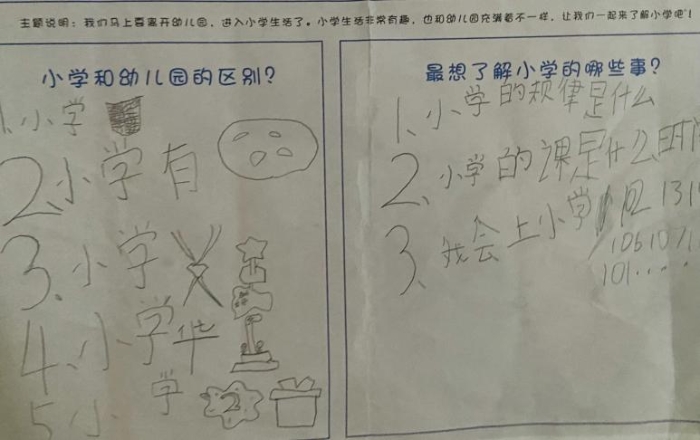 主题说明：我们马上要离开幼儿园，进入小学生活了。小学生活非常有趣，也和幼儿园充满着不一样，让我们一起来了解小学吧！
小学和幼儿园的区别？
1、小学
2、小学有
3、小学
4、小学华
5、小学 2
最想了解小学的哪些事？
1、小学的规律是什么
2、小学的课是什么时
3、我会上小学 102 131
105 107 1
101……